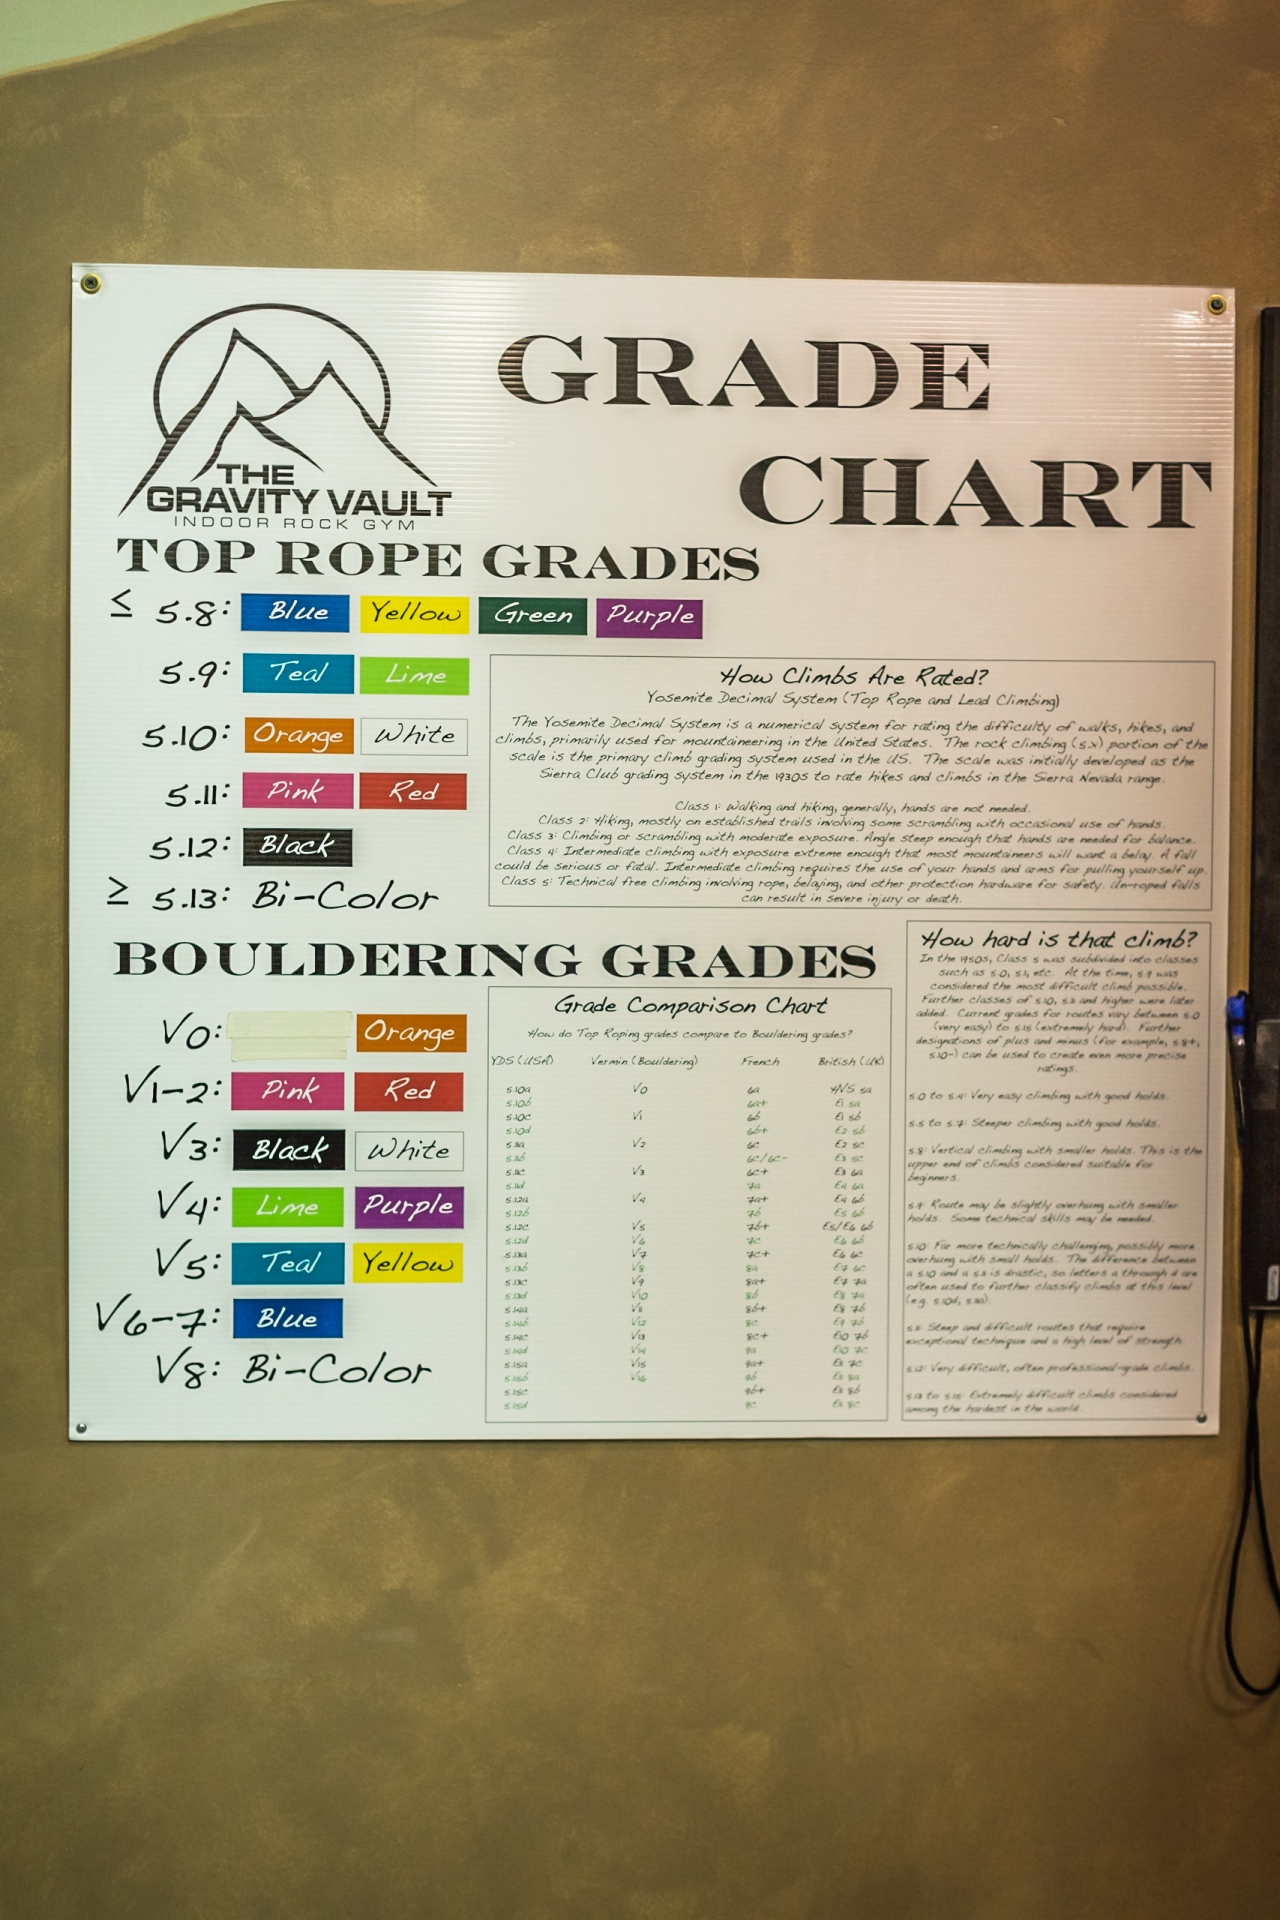 GRADE
CHART
THE
GRAVITY VAULT
INDOOR ROCK GYM
TOP ROPE GRADES
≤ 5.8: Blue Yellow Green Purple
5.9: Teal Lime
5.10: Orange White
5.11: Pink Red
5.12: Black
≥ 5.13: Bi-Color
How Climbs Are Rated?
Yosemite Decimal System (Top Rope and Lead Climbing)
The Yosemite Decimal System is a numerical system for rating the difficulty of walks, hikes, and
climbs, primarily used for mountaineering in the United States. The rock climbing (5.x) portion of the
scale is the primary climb grading system used in the US. The scale was initially developed as the
Sierra Club grading system in the 1930s to rate hikes and climbs in the Sierra Nevada range.
Class 1: Walking and hiking, generally, hands are not needed.
Class 2: Hiking, mostly on established trails involving some scrambling with occasional use of hands.
Class 3: Climbing or scrambling with moderate exposure. Angle steep enough that hands are needed for balance.
Class 4: Intermediate climbing with exposure extreme enough that most mountaineers will want a belay. A fall
could be serious or fatal. Intermediate climbing requires the use of your hands and arms for pulling yourself up.
Class 5: Technical free climbing involving rope, belaying, and other protection hardware for safety. Un-roped falls
can result in severe injury or death.
BOULDERING GRADES
V0: Orange
V1-2: Pink Red
V3: Black White
V4: Lime Purple
V5: Teal Yellow
V6-7: Blue
V8: Bi-Color
Grade Comparison Chart
How do Top Roping grades compare to Bouldering grades?
YDS (USA) Vermin (Bouldering) French British (UK)
5.10a V0 6a HVS 5a
5.10b 6a+ E1 5a
5.10c V1 6b E1 5b
5.10d 6b+ E2 5b
5.11a V2 6c E2 5c
5.11b 6c/6c- E3 5c
5.11c V3 6c+ E3 6a
5.11d 7a E4 6a
5.12a V4 7a+ E4 6b
5.12b 7b E5 6b
5.12c V5 7b+ E5/E6 6b
5.12d V6 7c E6 6b
5.13a V7 7c+ E6 6c
5.13b V8 8a E7 6c
5.13c V9 8a+ E7 7a
5.13d V10 8b E8 7a
5.14a V11 8b+ E8 7b
5.14b V12 8c E9 7b
5.14c V13 8c+ E10 7b
5.14d V14 9a E10 7c
5.15a V15 9a+ E11 7c
5.15b V16 9b E11 8a
5.15c 9b+ E11 8b
5.15d 9c E11 8c
How hard is that climb?
In the 1950s, Class 5 was subdivided into classes
such as 5.0, 5.1, etc. At the time, 5.9 was
considered the most difficult climb possible.
Further classes of 5.10, 5.11 and higher were later
added. Current grades for routes vary between 5.0
(very easy) to 5.15 (extremely hard). Further
designations of plus and minus (for example, 5.8+,
5.10-) can be used to create even more precise
ratings.
5.0 to 5.4: Very easy climbing with good holds.
5.5 to 5.7: Steeper climbing with good holds.
5.8: Vertical climbing with smaller holds. This is the
upper end of climbs considered suitable for
beginners.
5.9: Route may be slightly overhung with smaller
holds. Some technical skills may be needed.
5.10: Far more technically challenging, possibly more
overhung with small holds. The difference between
a 5.10 and a 5.11 is drastic, so letters a through d are
often used to further classify climbs at this level
(e.g. 5.10d, 5.11a).
5.11: Steep and difficult routes that require
exceptional technique and a high level of strength.
5.12: Very difficult, often professional-grade climbs.
5.13 to 5.15: Extremely difficult climbs considered
among the hardest in the world.